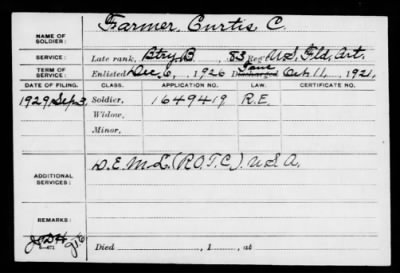 Farmer, Curtis C.
NAME OF SOLDIER:
SERVICE: Late rank, Btry. B, 83 Reg't U.S. Fld. Art.
TERM OF SERVICE: Enlisted Dec. 6, 1926 Discharged Oct. 11, 1921.
DATE OF FILING. CLASS. APPLICATION NO. LAW. CERTIFICATE NO.
1929 Sep. 3 Soldier, 1649419 R.E.
Widow,
Minor,
ADDITIONAL SERVICES: D.E.M.L. (R.O.T.C.) U.S.A.
REMARKS:
Died , 1 , at